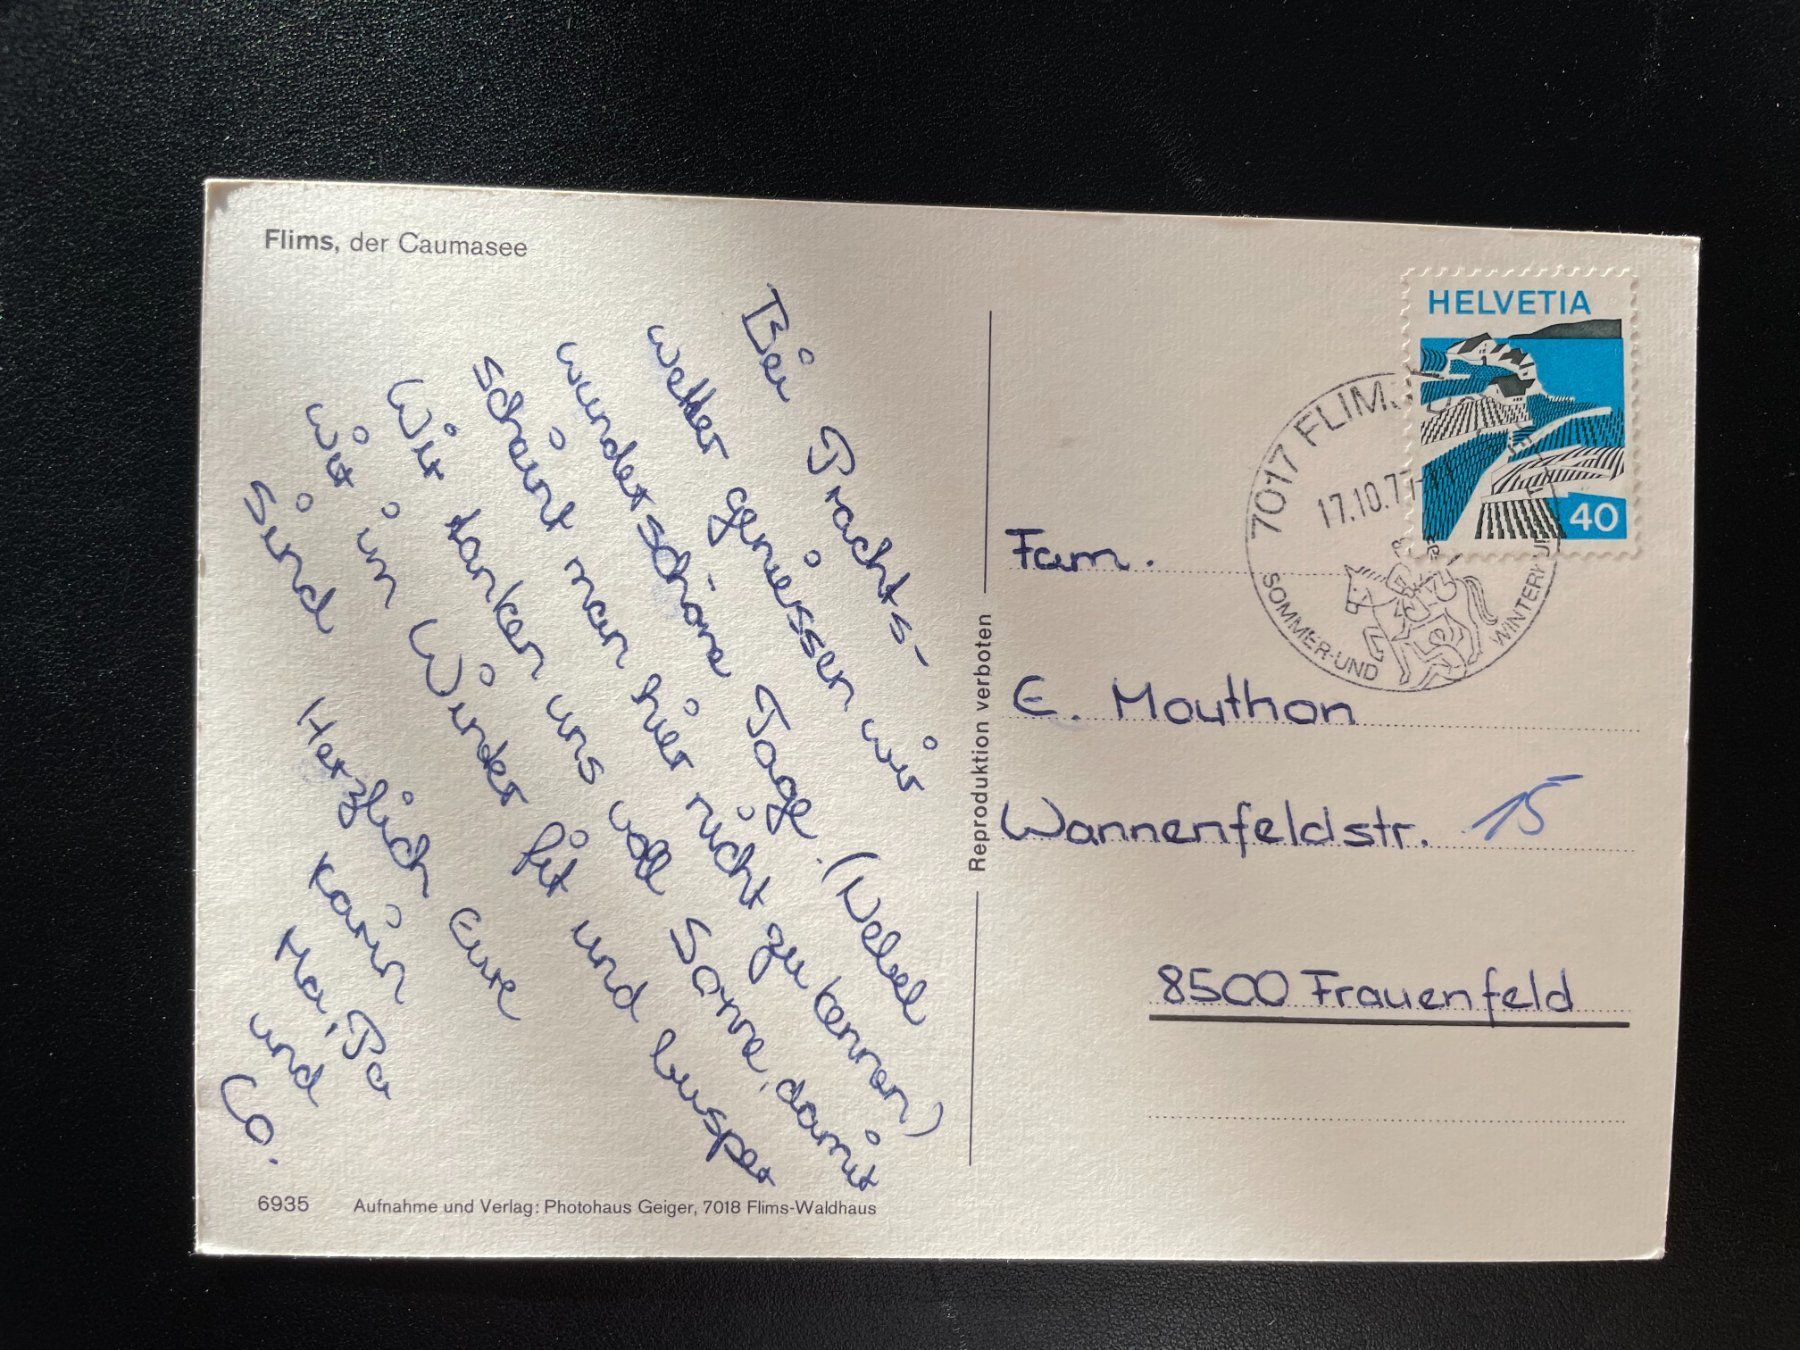 Flims, der Caumasee
Bei Prachts-
wetter geniessen wir
wunderschöne Tage. (Nebel
scheint man hier nicht zu kennen)
Wir tanken uns voll Sonne, damit
wir im Winter fit und busper
sind
Herzlich Eure
Karin
Ma, Pa
und
Co.
6935 Aufnahme und Verlag: Photohaus Geiger, 7018 Flims-Waldhaus
Reproduktion verboten
HELVETIA
40
7017 FLIMS
17.10.7
SOMMER-UND
Fam.
E. Mouthon
Wannenfeldstr. 15
8500 Frauenfeld